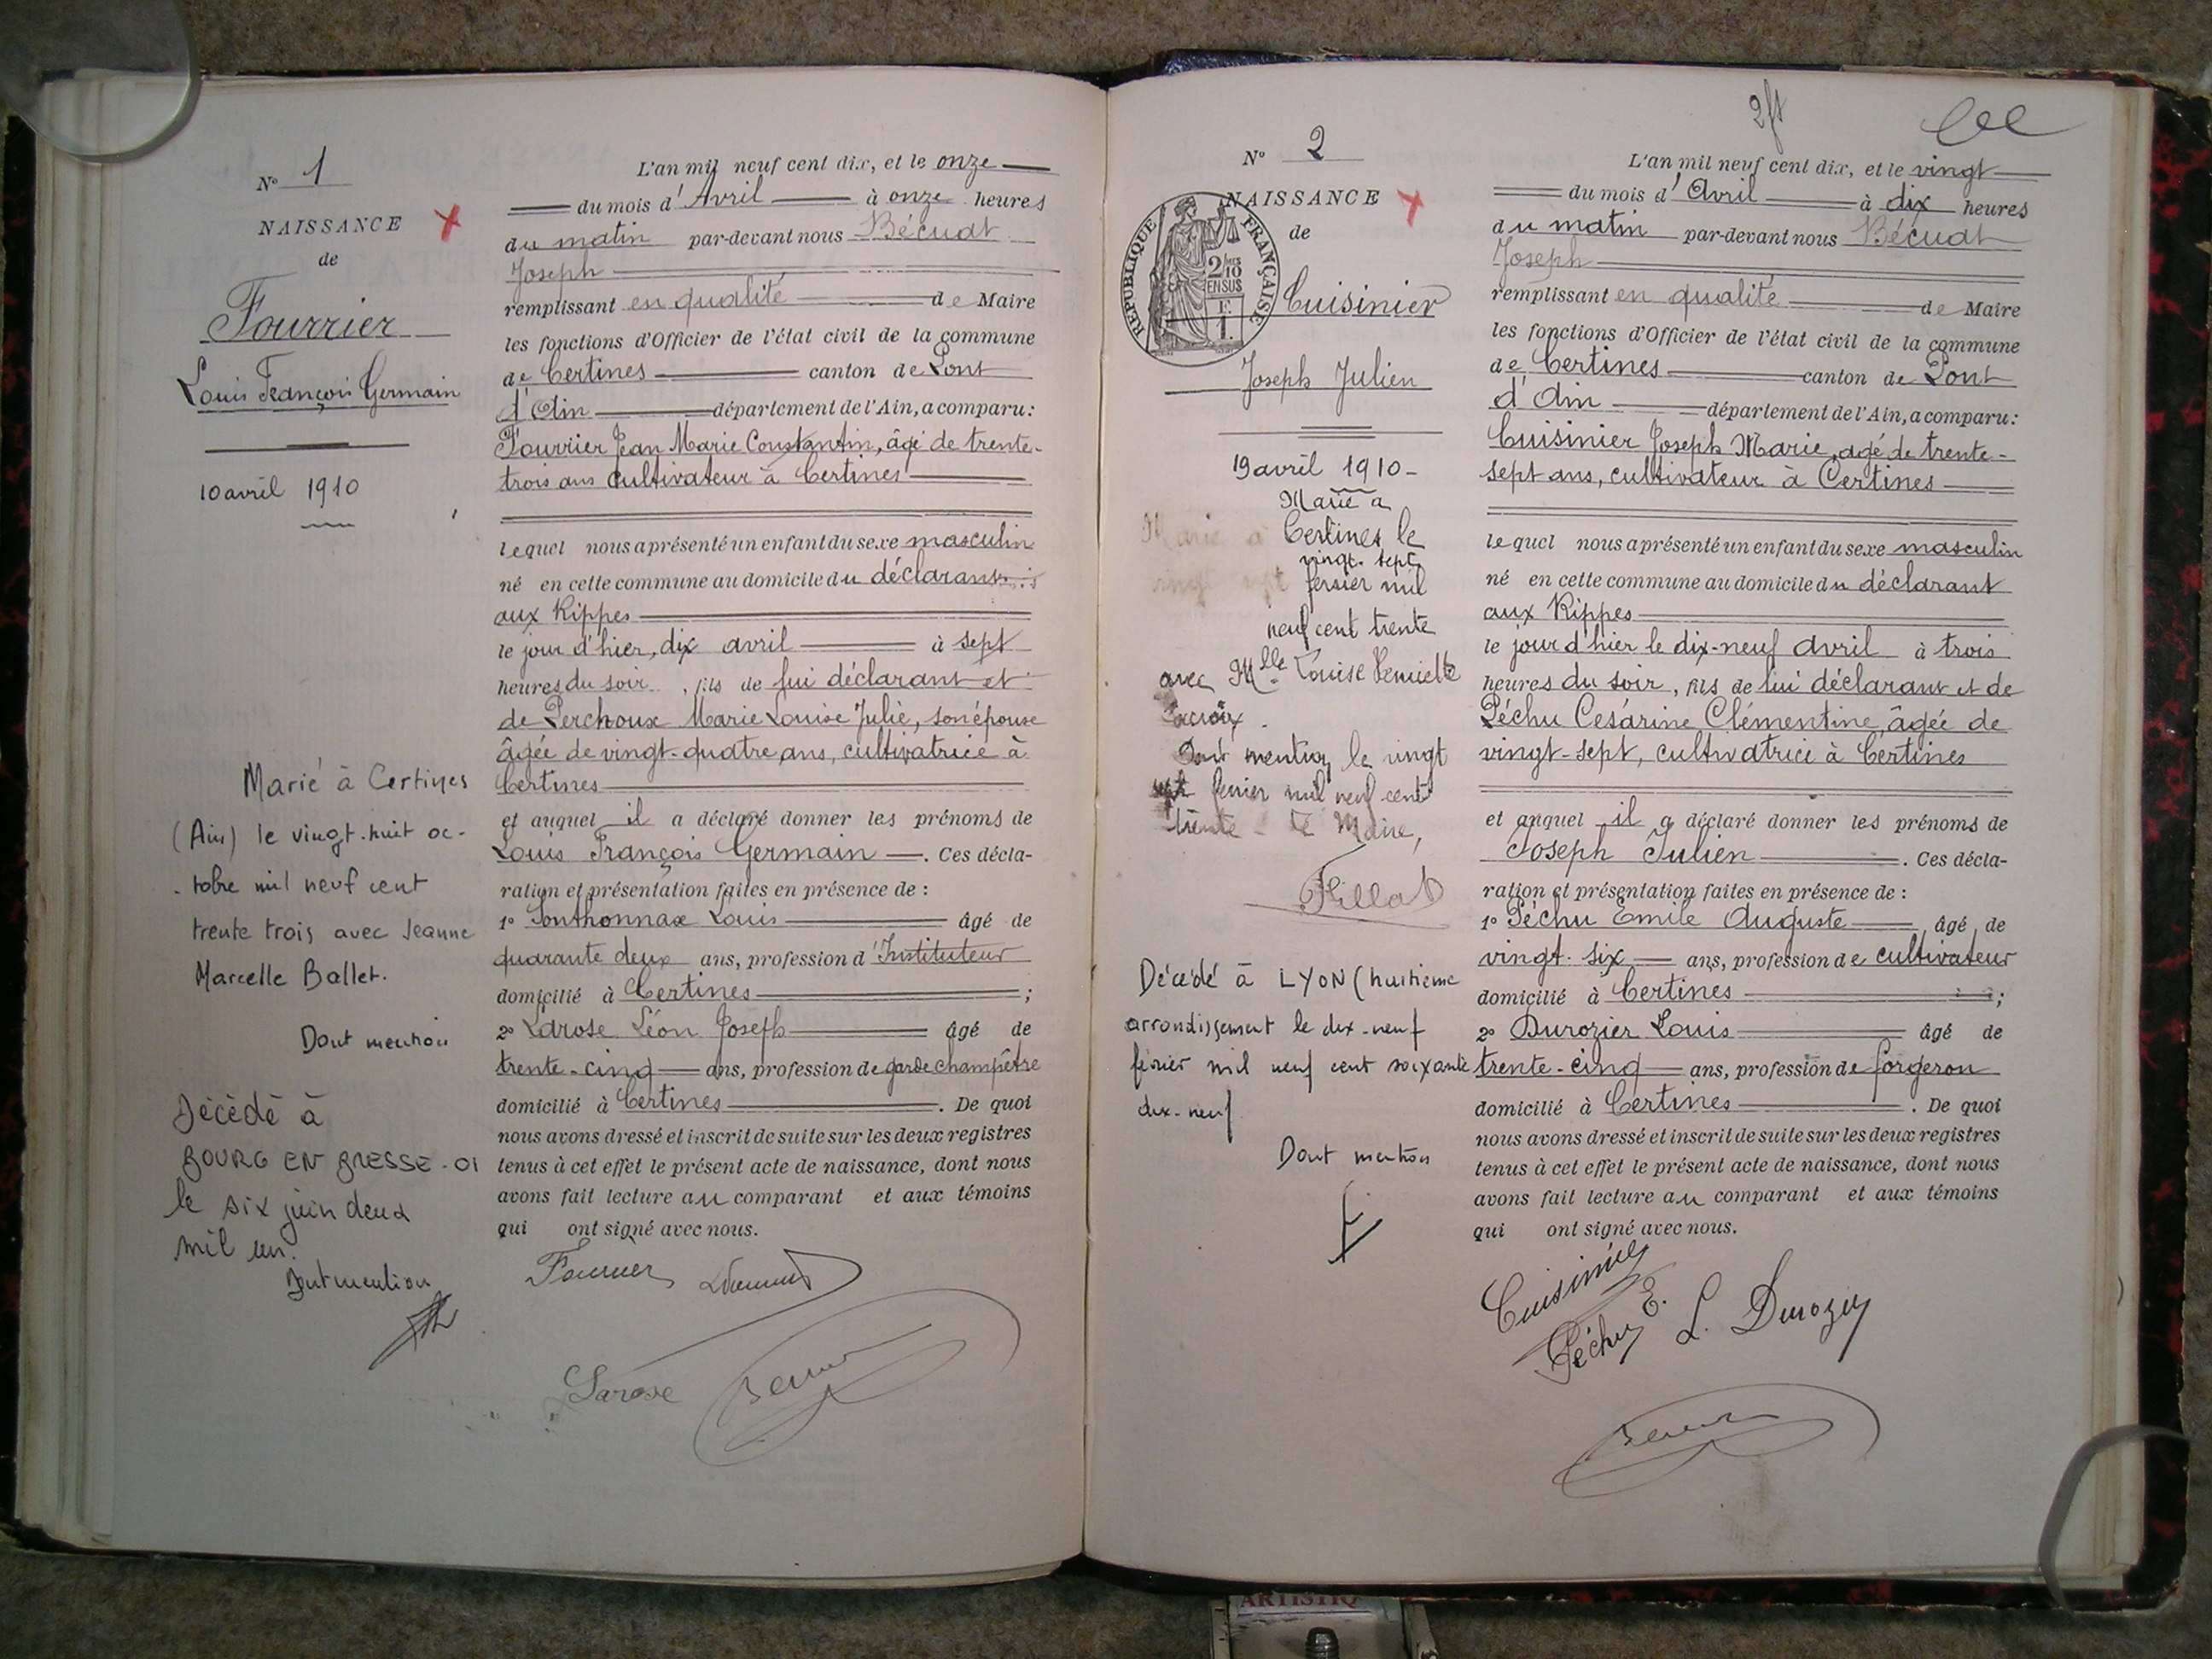 N° 1
NAISSANCE
de
Fourrier
Louis François Germain
10 avril 1910
Marié à Certines
(Ain) le vingt-huit oc-
-tobre mil neuf cent
trente trois avec Jeanne
Marcelle Ballet.
Dont mention
Décédé à
BOURG EN BRESSE - 01
le six juin deux
mil un.
Dont mention
L'an mil neuf cent dix, et le onze
du mois d'Avril à onze heures
du matin par-devant nous Bécuat
Joseph
remplissant en qualité de Maire
les fonctions d'Officier de l'état civil de la commune
de Certines canton de Pont
d'Ain département de l'Ain, a comparu:
Fourrier Jean Marie Constantin, âgé de trente-
trois ans cultivateur à Certines
lequel nous a présenté un enfant du sexe masculin
né en cette commune au domicile du déclarant
aux Rippes
le jour d'hier, dix avril à sept
heures du soir, fils de lui déclarant et
de Perchoux Marie Louise Julie, son épouse
âgée de vingt-quatre ans, cultivatrice à
Certines
et auquel il a déclaré donner les prénoms de
Louis François Germain. Ces décla-
ration et présentation faites en présence de :
1° Louis âgé de
quarante deux ans, profession d'Instituteur
domicilié à Certines ;
2° Larose Léon Joseph âgé de
trente-cinq ans, profession de garde champêtre
domicilié à Certines. De quoi
nous avons dressé et inscrit de suite sur les deux registres
tenus à cet effet le présent acte de naissance, dont nous
avons fait lecture au comparant et aux témoins
qui ont signé avec nous.
Fourrier
Larose
2ft
N° 2
NAISSANCE
de
REPUBLIQUE FRANÇAISE
2/10 EN SUS
Cuisinier
Joseph Julien
19 avril 1910-
Marié a
Certines le
vingt-sept
fevrier mil
neuf cent trente
avec Mlle Louise
Lacroix.
Dont mention le vingt
sept fevrier mil neuf cent
trente - Le Maire,
Décédé à LYON (huitième
arrondissement le dix-neuf
février mil neuf cent soixante
dix-neuf
Dont mention
L'an mil neuf cent dix, et le vingt
du mois d'Avril à dix heures
du matin par-devant nous Bécuat
Joseph
remplissant en qualité de Maire
les fonctions d'Officier de l'état civil de la commune
de Certines canton de Pont
d'Ain département de l'Ain, a comparu:
Cuisinier Joseph Marie, agé de trente-
sept ans, cultivateur à Certines
lequel nous a présenté un enfant du sexe masculin
né en cette commune au domicile du déclarant
aux Rippes
le jour d'hier le dix-neuf avril à trois
heures du soir, fils de lui déclarant et de
Péchu Césarine Clémentine, âgée de
vingt-sept, cultivatrice à Certines
et auquel il a déclaré donner les prénoms de
Joseph Julien. Ces décla-
ration et présentation faites en présence de :
1° Péchu Emile Auguste âgé de
vingt-six ans, profession de cultivateur
domicilié à Certines ;
2° Durozier Louis âgé de
trente-cinq ans, profession de forgeron
domicilié à Certines. De quoi
nous avons dressé et inscrit de suite sur les deux registres
tenus à cet effet le présent acte de naissance, dont nous
avons fait lecture au comparant et aux témoins
qui ont signé avec nous.
Cuisinier
Péchu E. L. Durozier
ARTISTIQ